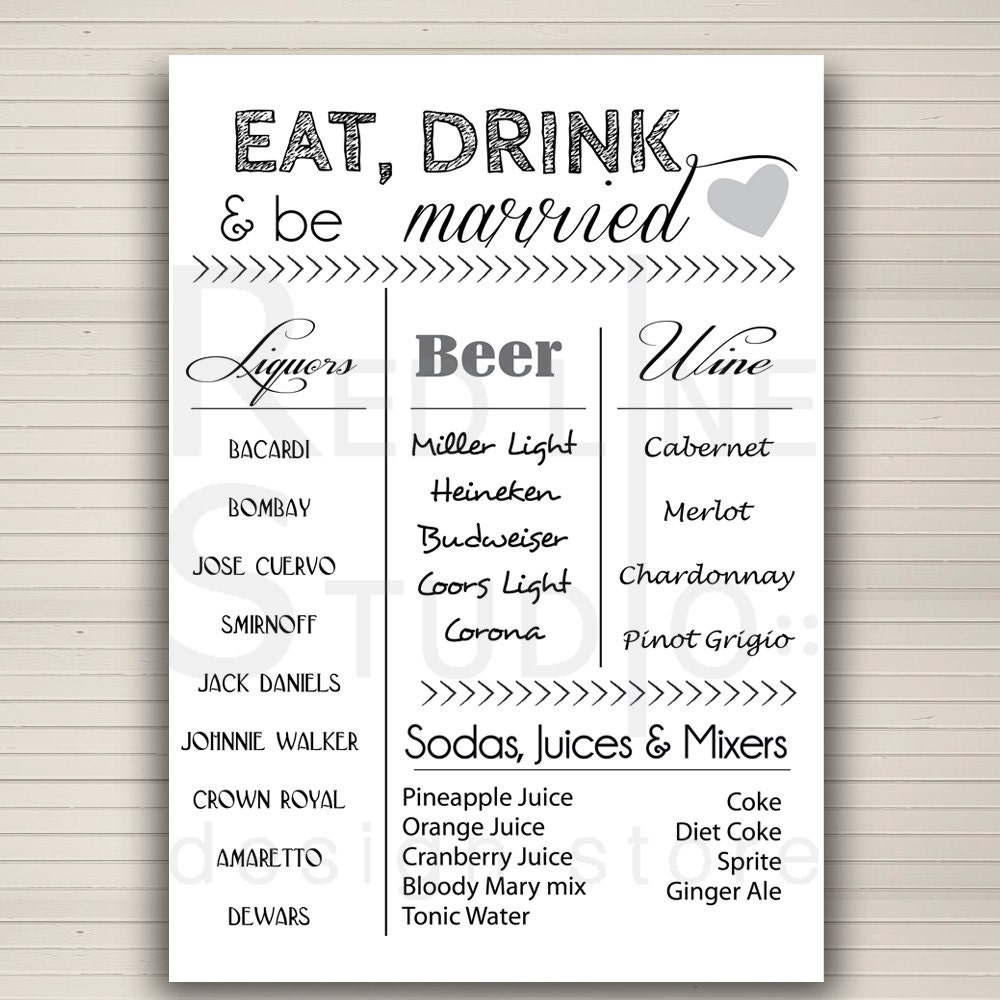 EAT, DRINK
& be married
Liquors
BACARDI
BOMBAY
JOSE CUERVO
SMIRNOFF
JACK DANIELS
JOHNNIE WALKER
CROWN ROYAL
AMARETTO
DEWARS
Beer
Miller Light
Heineken
Budweiser
Coors Light
Corona
Wine
Cabernet
Merlot
Chardonnay
Pinot Grigio
Sodas, Juices & Mixers
Pineapple Juice
Orange Juice
Cranberry Juice
Bloody Mary mix
Tonic Water
Coke
Diet Coke
Sprite
Ginger Ale
RED LINE
STUDIO
design store